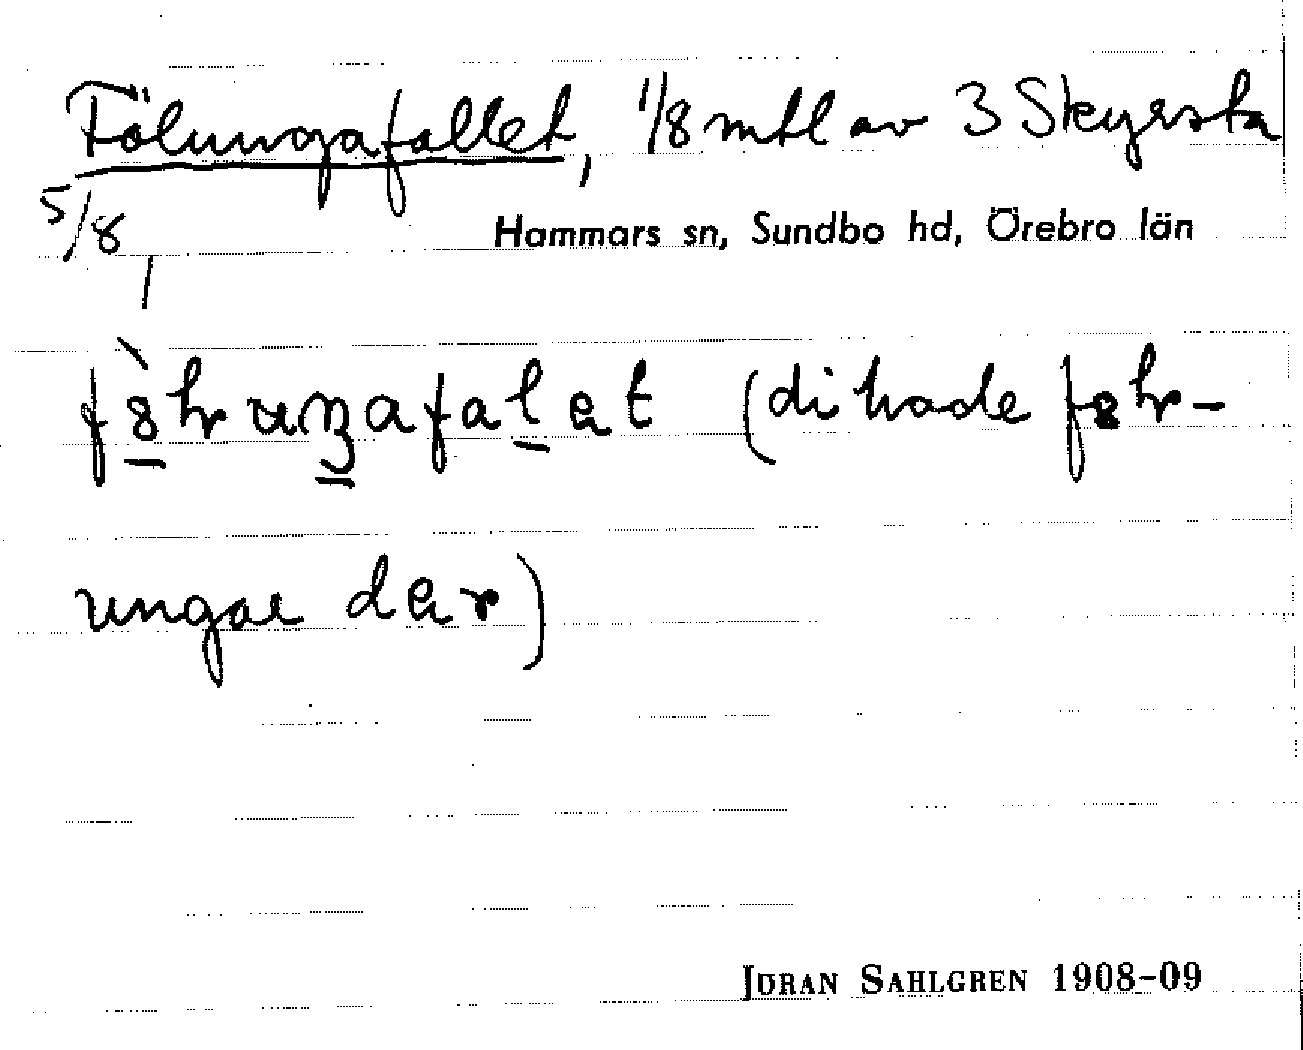 Fölungafallet, 1/8 mtl av 3 Skyrsta
5/8
Hammars sn, Sundbo hd, Örebro län
(di hade føhr-
ungar dær)
JÖRAN SAHLGREN 1908-09